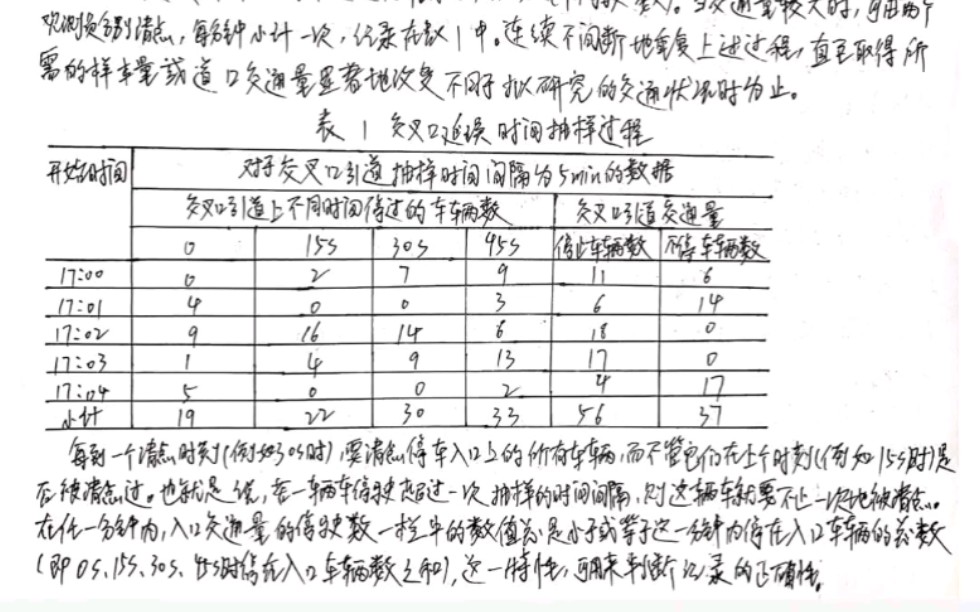 观测员分别清点，每分钟小计一次，记录在表1中。连续不间断地重复上述过程，直至取得所
需的样本量或道口交通量显著地改变不同于拟研究的交通状况时为止。
表1 交叉口延误时间抽样过程
开始时间 对于交叉口引道抽样时间间隔为5min的数据
交叉口引道上不同时间停过的车辆数 交叉口引道交通量
0 15s 30s 45s 停止车辆数 不停车辆数
17:00 0 2 7 9 11 6
17:01 4 0 0 3 6 14
17:02 9 16 14 6 18 0
17:03 1 4 9 13 17 0
17:04 5 0 0 2 4 17
小计 19 22 30 33 56 37
每到一个清点时刻(例如30s时)，要清点停车入口上的所有车辆，而不管它们在上个时刻(例如15s时)是
否被清点过。也就是说，若一辆车停驶超过一次抽样的时间间隔，则这辆车就要不止一次地被清点。
在任一分钟内，入口交通量的停驶数一栏中的数值总是小于或等于这一分钟内停在入口车辆的总数
(即0s、15s、30s、45s时停在入口车辆数之和)，这一特性，可用来判断记录的正确性。